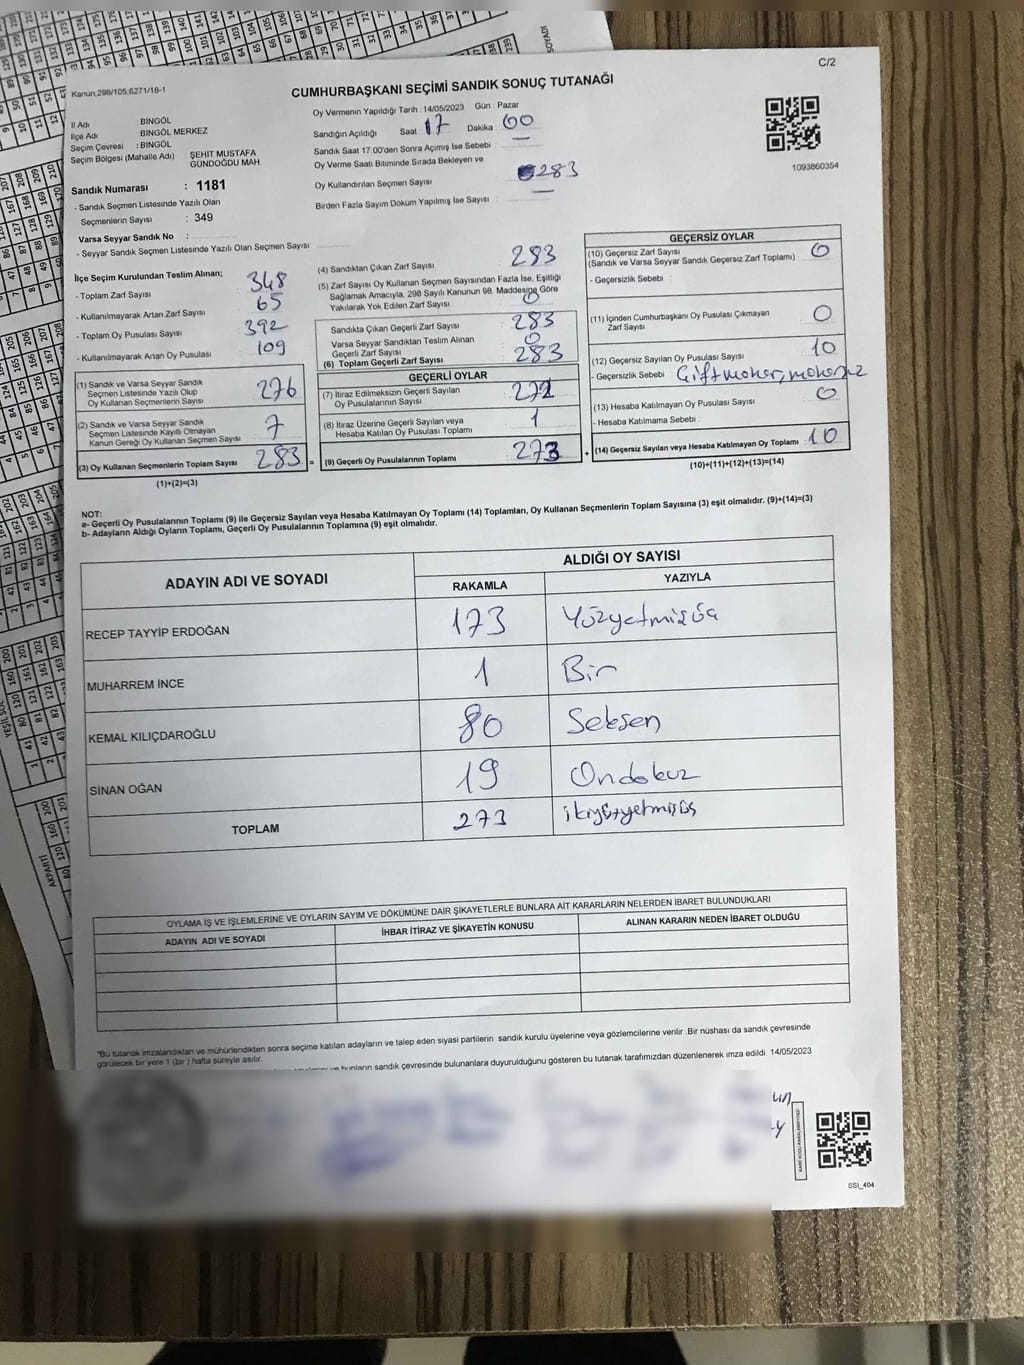 C/2
Kanun,298/105,6271/18-1
CUMHURBAŞKANI SEÇİMİ SANDIK SONUÇ TUTANAĞI
İl Adı BİNGÖL
İlçe Adı BİNGÖL MERKEZ
Seçim Çevresi : BİNGÖL
Seçim Bölgesi (Mahalle Adı) ŞEHİT MUSTAFA GÜNDOĞDU MAH.
Sandık Numarası : 1181
- Sandık Seçmen Listesinde Yazılı Olan
Seçmenlerin Sayısı : 349
Varsa Seyyar Sandık No :
- Seyyar Sandık Seçmen Listesinde Yazılı Olan Seçmen Sayısı:
Oy Vermenin Yapıldığı Tarih : 14/05/2023 Gün : Pazar
Sandığın Açıldığı Saat 17 Dakika 00
Sandık Saat 17.00'den Sonra Açımış İse Sebebi :
Oy Verme Saati Bitiminde Sırada Bekleyen ve
Oy Kullandırılan Seçmen Sayısı 283
Birden Fazla Sayım Döküm Yapılmış İse Sayısı :
1093860354
İlçe Seçim Kurulundan Teslim Alınan;
- Toplam Zarf Sayısı 348
- Kullanılmayarak Artan Zarf Sayısı 65
- Toplam Oy Pusulası Sayısı 392
- Kullanılmayarak Artan Oy Pusulası 109
(1) Sandık ve Varsa Seyyar Sandık
Seçmen Listesinde Yazılı Olup
Oy Kullanan Seçmenlerin Sayısı 276
(2) Sandık ve Varsa Seyyar Sandık
Seçmen Listesinde Kayıtlı Olmayan
Kanun Gereği Oy Kullanan Seçmen Sayısı 7
(3) Oy Kullanan Seçmenlerin Toplam Sayısı 283 =
(1)+(2)=(3)
(4) Sandıktan Çıkan Zarf Sayısı 283
(5) Zarf Sayısı Oy Kullanan Seçmen Sayısından Fazla İse, Eşitliği
Sağlamak Amacıyla, 298 Sayılı Kanunun 98. Maddesine Göre
Yakılarak Yok Edilen Zarf Sayısı 0
Sandıkta Çıkan Geçerli Zarf Sayısı 283
Varsa Seyyar Sandıktan Teslim Alınan
Geçerli Zarf Sayısı 0
(6) Toplam Geçerli Zarf Sayısı 283
GEÇERLİ OYLAR
(7) İtiraz Edilmeksizin Geçerli Sayılan
Oy Pusulalarının Sayısı 272
(8) İtiraz Üzerine Geçerli Sayılan veya
Hesaba Katılan Oy Pusulası Toplamı 1
(9) Geçerli Oy Pusulalarının Toplamı 273 +
GEÇERSİZ OYLAR
(10) Geçersiz Zarf Sayısı
(Sandık ve Varsa Seyyar Sandık Geçersiz Zarf Toplamı) 0
- Geçersizlik Sebebi
(11) İçinden Cumhurbaşkanı Oy Pusulası Çıkmayan
Zarf Sayısı 0
(12) Geçersiz Sayılan Oy Pusulası Sayısı 10
- Geçersizlik Sebebi
(13) Hesaba Katılmayan Oy Pusulası Sayısı 0
- Hesaba Katılmama Sebebi
(14) Geçersiz Sayılan veya Hesaba Katılmayan Oy Toplamı : 10
(10)+(11)+(12)+(13)=(14)
NOT:
a- Geçerli Oy Pusulalarının Toplamı (9) ile Geçersiz Sayılan veya Hesaba Katılmayan Oy Toplamı (14) Toplamları, Oy Kullanan Seçmenlerin Toplam Sayısına (3) eşit olmalıdır. (9)+(14)=(3)
b- Adayların Aldığı Oyların Toplamı, Geçerli Oy Pusulalarının Toplamına (9) eşit olmalıdır.
ADAYIN ADI VE SOYADI ALDIĞI OY SAYISI
RAKAMLA YAZIYLA
RECEP TAYYİP ERDOĞAN 173 Yüzyetmişüç
MUHARREM İNCE 1 Bir
KEMAL KILIÇDAROĞLU 80 Seksen
SİNAN OĞAN 19 Ondokuz
TOPLAM 273 ikiyüzyetmişüç
OYLAMA İŞ VE İŞLEMLERİNE VE OYLARIN SAYIM VE DÖKÜMÜNE DAİR ŞİKAYETLERLE BUNLARA AİT KARARLARIN NELERDEN İBARET BULUNDUKLARI
ADAYIN ADI VE SOYADI İHBAR İTİRAZ VE ŞİKAYETİN KONUSU ALINAN KARARIN NEDEN İBARET OLDUĞU
*Bu tutanak imzalandıktan ve mühürlendikten sonra seçime katılan adayların ve talep eden siyasi partilerin sandık kurulu üyelerine veya gözlemcilerine verilir .Bir nüshası da sandık çevresinde
görülecek bir yere 1 (bir ) hafta süreyle asılır.
bunların sandık çevresinde bulunanlara duyurulduğunu gösteren bu tutanak tarafımızdan düzenlenerek imza edildi. 14/05/2023
SSI_404